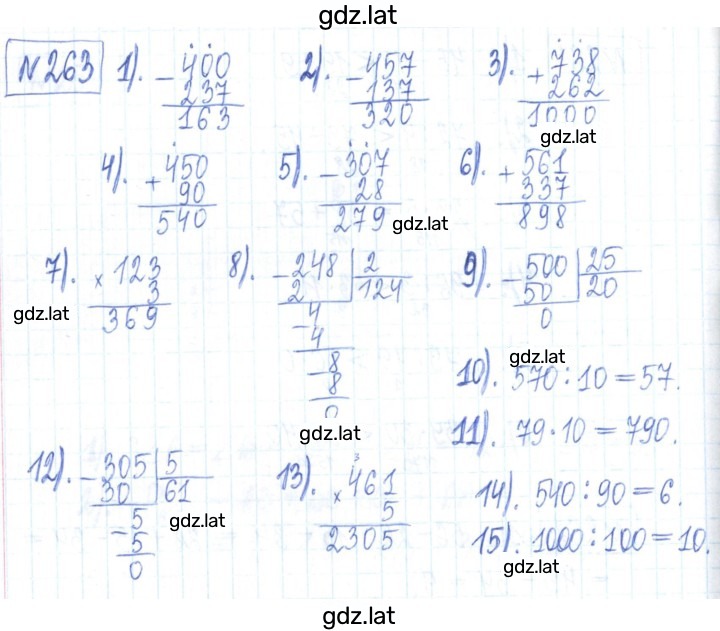 gdz.lat
№263 1). − 400 2). − 457 3). + 738
237 137 262
163 320 1000
gdz.lat
4). + 450 5). − 307 6). + 561
90 28 337
540 279 898
gdz.lat
7). × 123 8). − 248 | 2 9). − 500 | 25
3 2 124 50 20
369 − 4 0
gdz.lat
4
− 8
8
0
gdz.lat
gdz.lat
10). 570 : 10 = 57.
11). 79 · 10 = 790.
12). − 305 | 5 13). × 461 14). 540 : 90 = 6.
30 61 3 5
− 5 2305 15). 1000 : 100 = 10.
5
0
gdz.lat
gdz.lat
gdz.lat